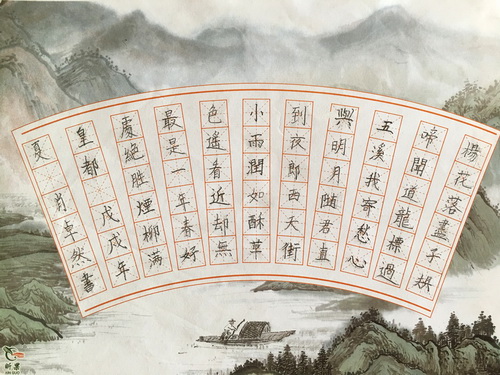 楊花落盡子規
啼聞道龍標過
五溪我寄愁心
與明月随君直
到夜郎西天街
小雨潤如酥草
色遙看近却無
最是一年春好
處絕勝煙柳滿
皇都 戊戌年
夏 肖卓然書